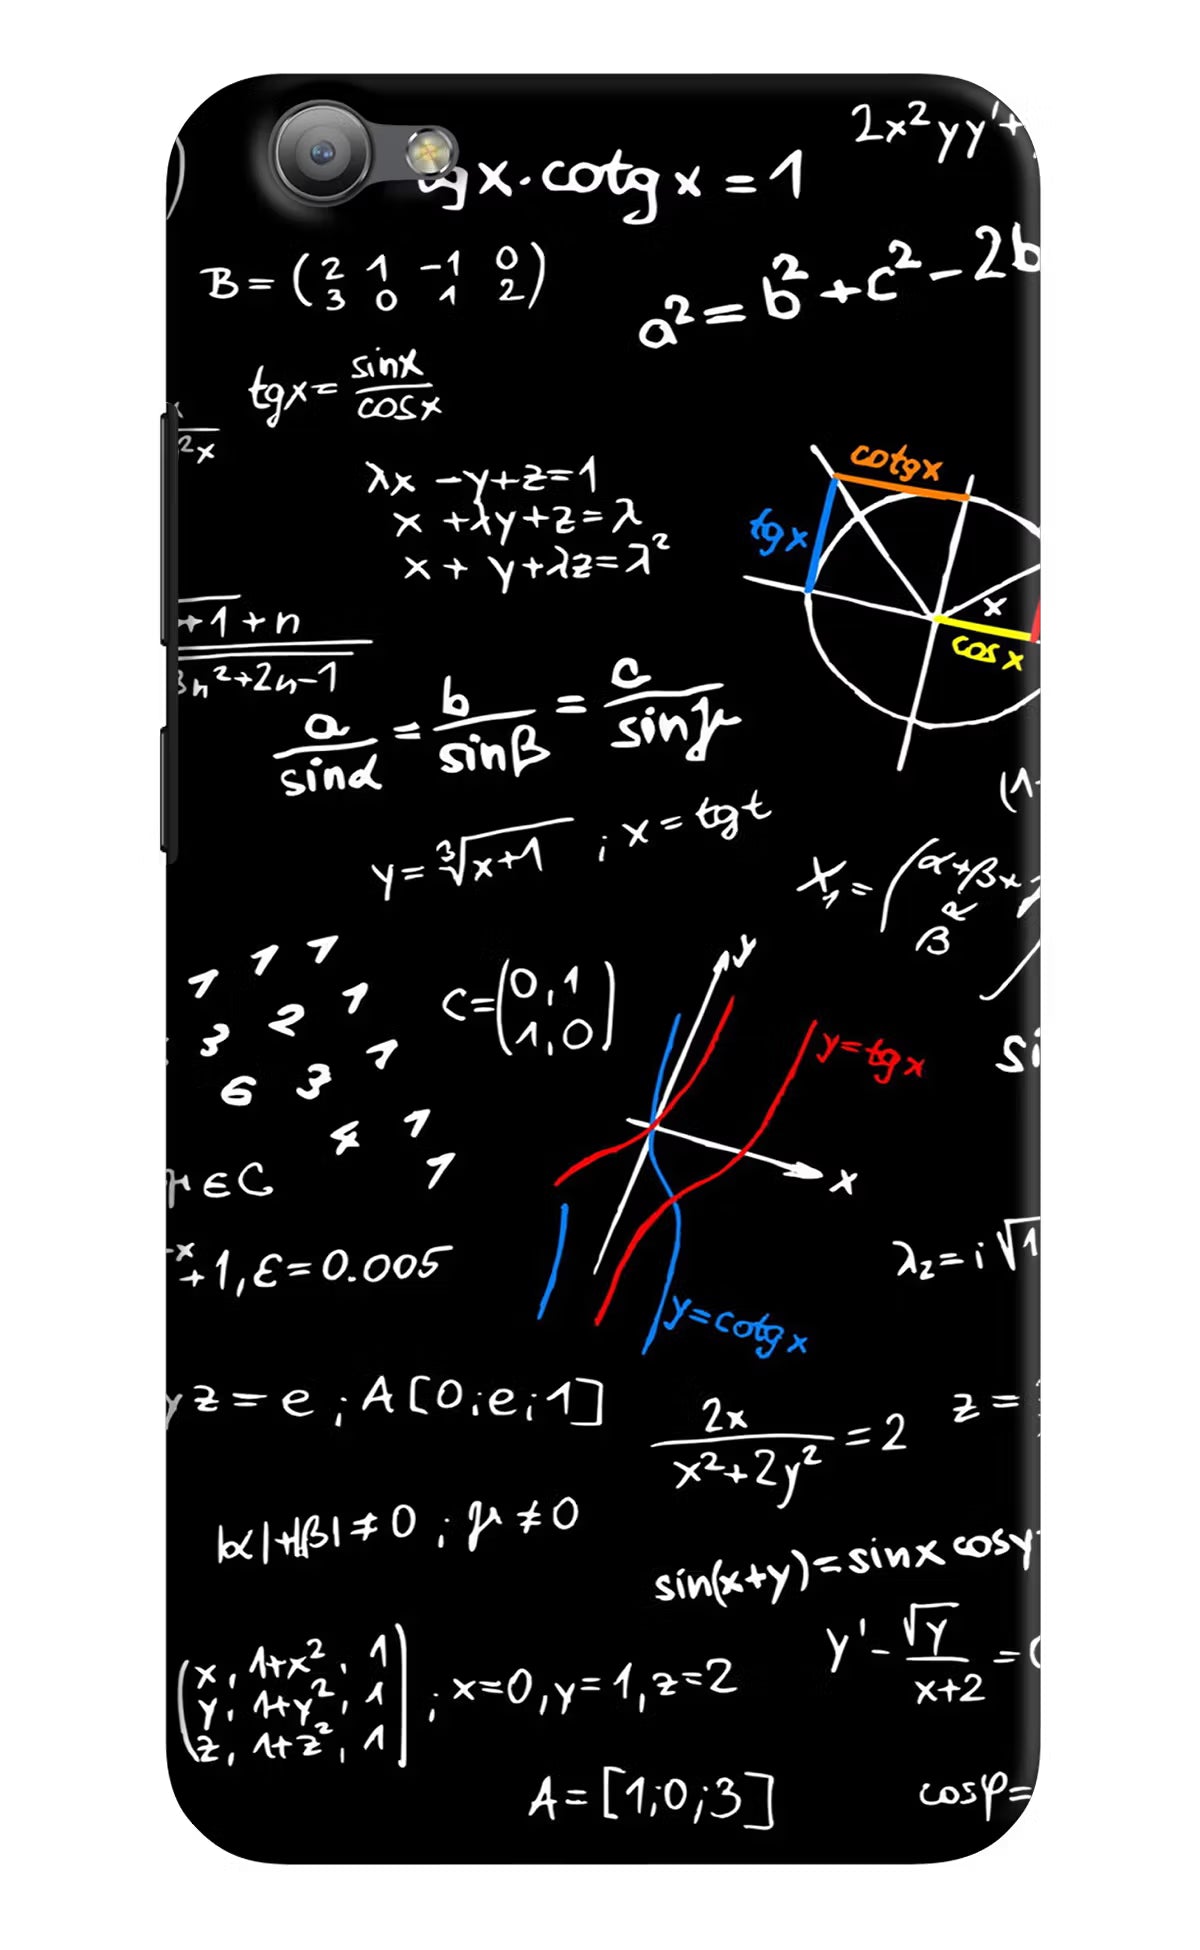 2x²yy'+
tgx·cotgx=1
B=(2 1 -1 0
3 0 1 2)
a²=b²+c²-2b
tgx=sinx/cosx
2x
cotgx
λx-y+z=1
x+λy+z=λ
x+y+λz=λ²
tgx
x
cosx
+1+n
3n²+2n-1
a/sinα=b/sinβ=c/sinγ
y=³√x+1 ; x=tgt
X₁=(α+βx
β
1 1 1
3 2 1
6 3 1
4 1
1
C=(0,1
1,0)
y
y=tgx
si
x
μ∈C
-x
+1,ε=0.005
λ₂=i√1
y=cotgx
yz=e ; A[0;e;1]
2x/x²+2y²=2
z=
|α|+|β|≠0 ; μ≠0
sin(x+y)=sinx cosy
y'-√y/x+2=0
(x, 1+x², 1
y, 1+y², 1
z, 1+z², 1) ; x=0,y=1,z=2
A=[1;0;3]
cosφ=